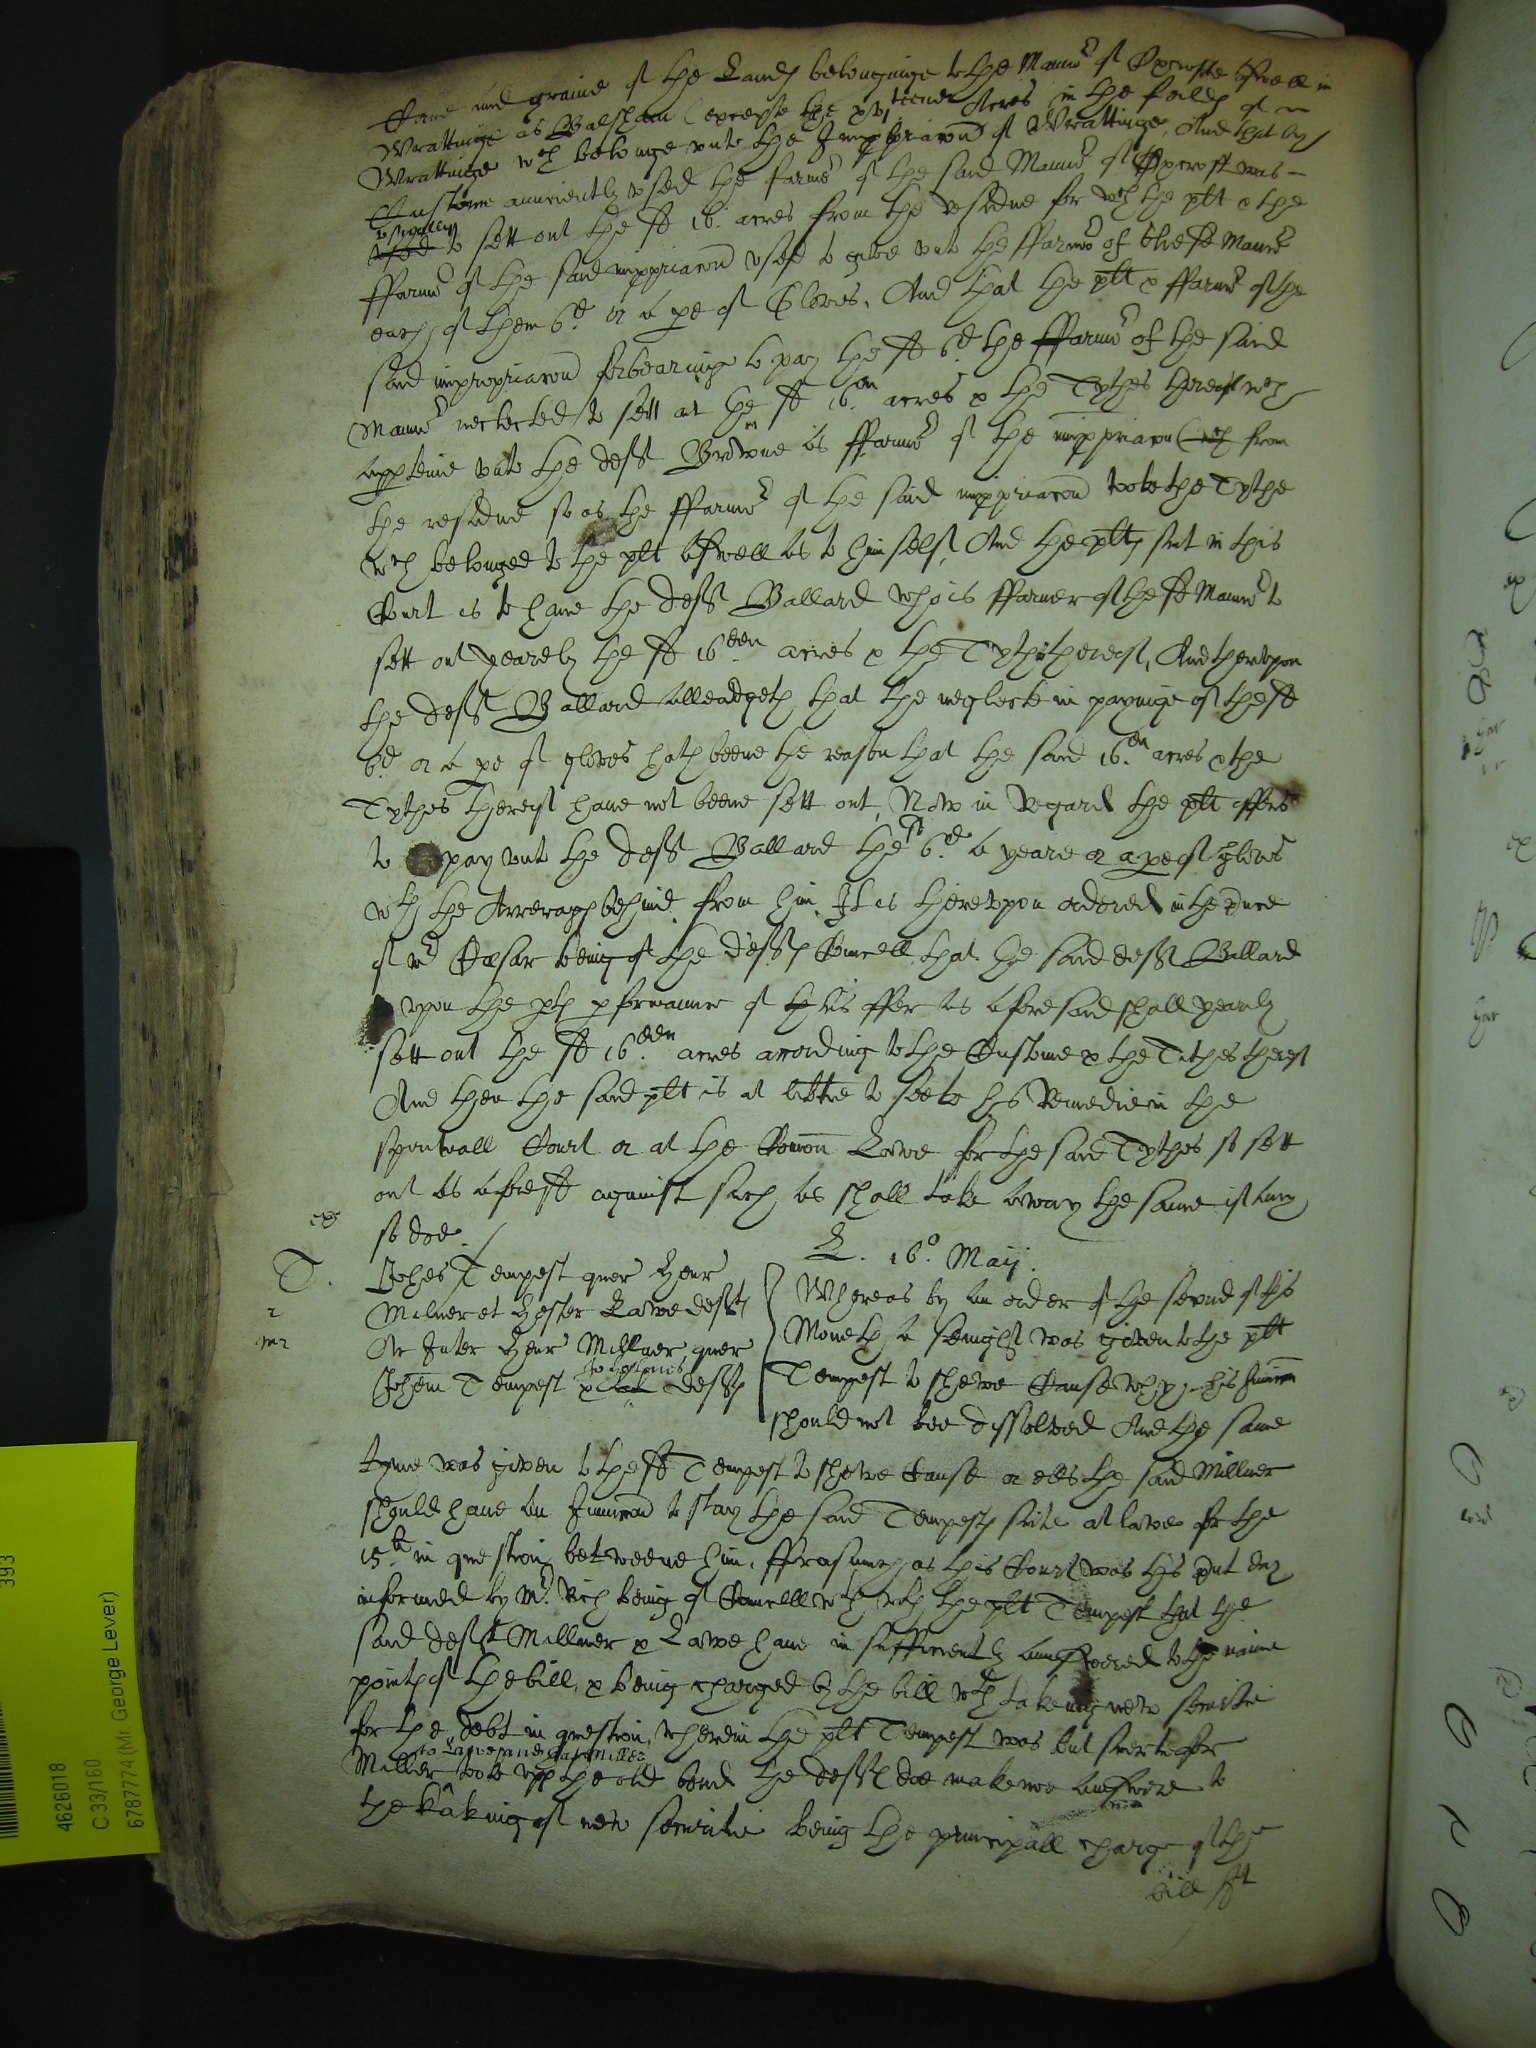 Corne and graine of the Landes belonginge to the Mannor of Oxcrofte aswell in
Wrattinge as Balsham (except the xvj teene Acres in the feildes of
Wrattinge wch belonge unto the Impropriacon of Wrattinge, And that by
Custome aunciently used the farmor of the said Mannor of Oxcroft was
usually to sett out the sd 16. acres from the residue for wch the plt & the
ffarmor of the said impropriacon used to give unto the ffarmor of the sd Mannor
each of them 6d or a pe of Gloves, And that the plt & ffarmor of the
said impropriacon forbearinge to pay the sd 6d the ffarmor of the said
Mannor neclected to sett out the sd 16en acres & the Tythes thereof wch
apptaine unto the deft Browne as ffarmor of the impropriacon from
the residue so as the ffarmor of the said impropriacon tooke the Tythe
wch belonged to the plt aswell as to himself, And the plts suit in this
Court is to have the deft Ballard who is ffarmer of the sd Mannor to
sett out yearely the sd 16een acres & the Tythes thereof, And therupon
the deft Ballard alleadgeth that the neglecte in payinge of the sd
6d or a pe of gloves hath beene the reason that the said 16en acres & the
Tythes thereof have not beene sett out, Now in regard the plt offers
to pay unto the deft Ballard the sd 6d a yeare or a pe of gloves
wth the Arrerages behind from him, It is thereupon ordered in the pnce
of mr Cæsar being of the defts Councell that the said deft Ballard
upon the plts pformance of his offer as aforesaid shall yearely
sett out the sd 16een acres according to the Custome & the Tithes thereof
And then the said plt is at libtie to seeke his Remedie in the
spirituall Court or at the Comon Lawe for the said Tythes so sett
out as aforesd against such as shall take away the same if any
so doe.
T.
Johes Tempest quer Henr
Milner et Hester Lawe deftes
Ac Inter Henr Millner quer
Johem Tempest & defts
L. 16o. Maij.
Whereas by an order of the second of this
Moneth a sennight was given to the plt
Tempest to shewe Cause why his Iniuncon
should not bee dissolved And the same
tyme was given to the sd Tempest to shewe Cause or els the said Millner
should have an Iniuncon to stay the said Tempests suite at lawe for the
15li in question betweene him, fforasmuch as this Court was this pnt day
informed by Mr. Rich being of Councell wth the plt Tempest that the
said deftes Millner & Lawe have insufficiently answeared to the maine
pointes of the bill, & being charged by the bill wth takeing new securitie
for the debt in question, wherein the plt Tempest was but suertie for
Millner tooke upp the old bond the defts doe make noe answere to
the takeing of new securitie being the principall charge of the
bill
393
4626018
C 33/160
6787774 (Mr. George Lever)